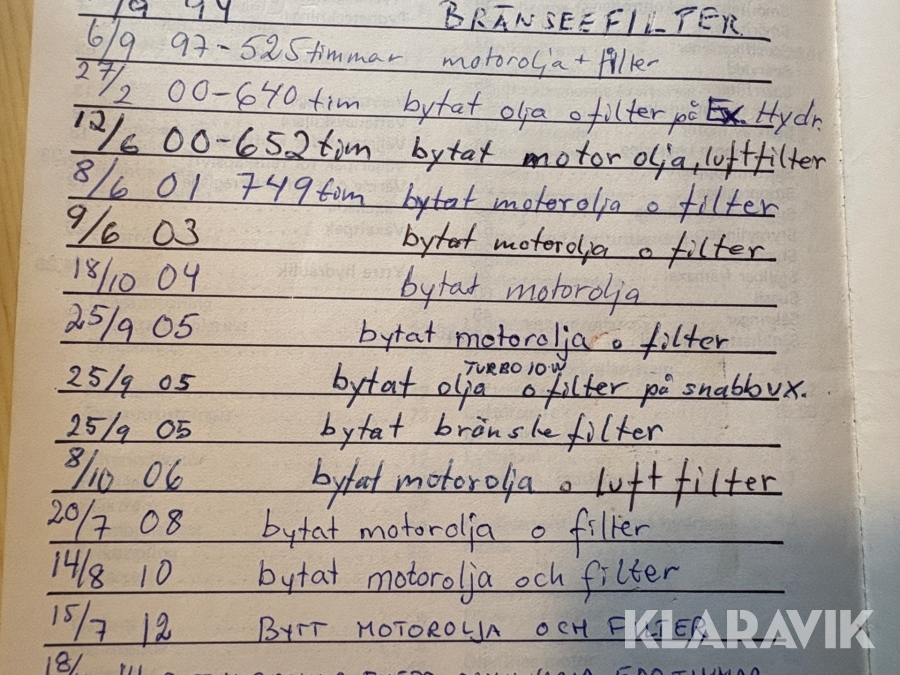 /9 94 BRÄNSEEFILTER
6/9 97-525timmar motorolja + filter
27/2 00-640tim bytat olja o filter på Ex. Hydr.
12/6 00-652tim bytat motorolja, luftfilter
8/6 01 749tim bytat motorolja o filter
9/6 03 bytat motorolja o filter
18/10 04 bytat motorolja
25/9 05 bytat motorolja o filter
TURBO 10W
25/9 05 bytat olja o filter på snabbvx.
25/9 05 bytat bränslefilter
8/10 06 bytat motorolja o luftfilter
20/7 08 bytat motorolja o filter
14/8 10 bytat motorolja och filter
15/7 12 BYTT MOTOROLJA OCH FILTER
18/ 14
KLARAVIK